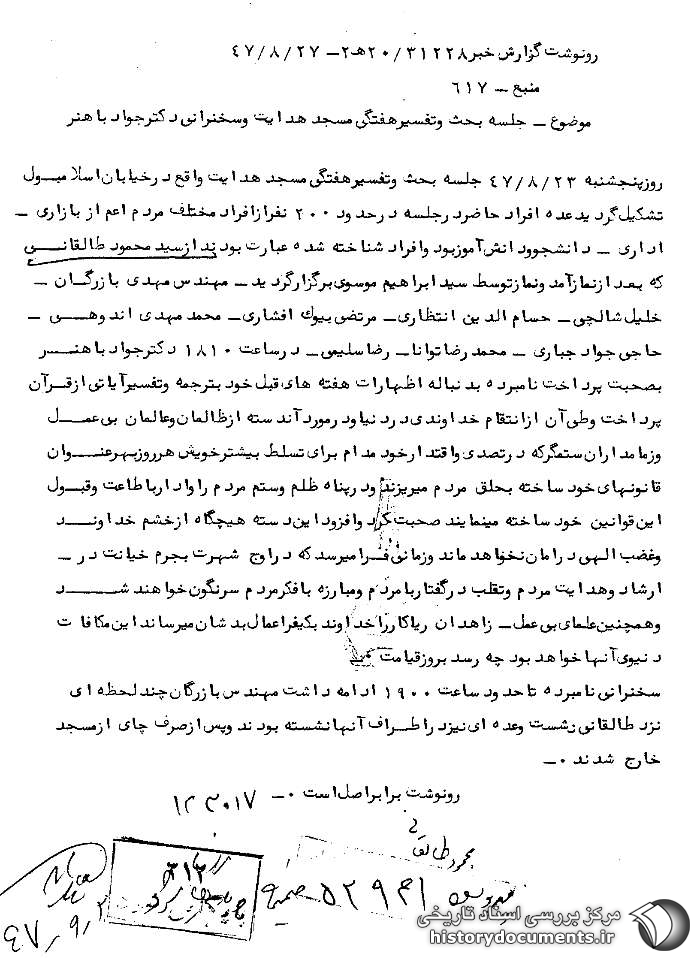 رونوشت گزارش خبر ۲۰/۳۱۲۲۸هـ۲ـ ۴۷/۸/۲۷
منبع ـ ۶۱۷
موضوع ـ جلسه بحث وتفسیر هفتگی مسجد هدایت وسخنرانی دکتر جواد باهنر
روز پنجشنبه ۴۷/۸/۲۳ جلسه بحث وتفسیر هفتگی مسجد هدایت واقع در خیابان اسلامبول
تشکیل گردید عده افراد حاضر در جلسه در حدود ۲۰۰ نفر از افراد مختلف مردم اعم از بازاری ـ
اداری ـ دانشجوودانش آموزبود وافراد شناخته شده عبارت بودند از سید محمود طالقانی
که بعد از نماز آمد ونماز توسط سید ابراهیم موسوی برگزار گردید ـ مهندس مهدی بازرگان ـ
خلیل شالچی ـ حسام الدین انتظاری ـ مرتضی بیوک افشاری ـ محمد مهدی اندوهی ـ
حاجی جواد جباری ـ محمد رضا توانا ـ رضا سلیمی ـ در ساعت ۱۸۱۰ دکتر جواد باهنر
بصحبت پرداخت نامبرده بدنباله اظهارات هفته های قبل خود بترجمه وتفسیر آیاتی از قرآن
پرداخت وطی آن از انتقام خداوندی در دنیا و در مورد آندسته از ظالمان وعالمان بی عمل
وزمامداران ستمگر که در تصدی واقتدار خود مدام برای تسلط بیشتر خویش هر روز بهر عنوان
قانونهای خود ساخته بحلق مردم میریزند ودر پناه ظلم وستم مردم را وادار باطاعت وقبول
این قوانین خود ساخته مینمایند صحبت کرد وافزود این دسته هیچگاه از خشم خداوند
وغضب الهی در امان نخواهد ماند وزمانی فرا میرسد که در اوج شهرت بجرم خیانت در ـ
ارشاد وهدایت مردم وتقلب در گفتار با مردم ومبارزه با فکر مردم سرنگون خواهند شد
وهمچنین علمای بی عمل ـ زاهدان ریاکار را خداوند بکیفر اعمال بدشان میرساند این مکافات
دنیوی آنها خواهد بود چه رسد بروز قیامت
سخنرانی نامبرده تا حدود ساعت ۱۹۰۰ ادامه داشت مهندس بازرگان چند لحظه ای
نزد طالقانی نشست وعده ای نیز در اطراف آنها نشسته بودند وپس از صرف چای از مسجد
خارج شدند ۰ـ
رونوشت برابر اصل است ۰ـ
محمود طالقانی
۳۱۲
۵۲۹۳۱ ضمیمه
۴۷٫۹٫۲
مرکز بررسی اسناد تاریخی
historydocuments.ir